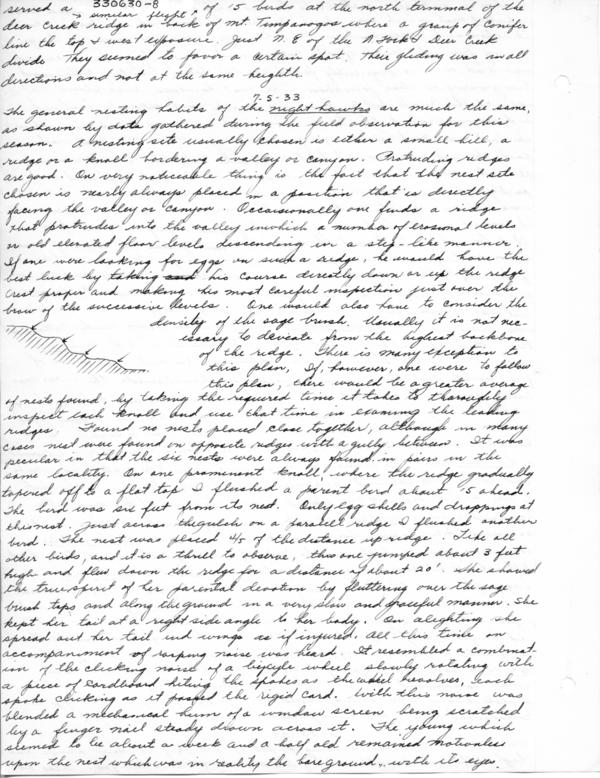 served a similar flight of 15 birds at the north terminal of the
330630-8
deer Creek ridge in back of Mt. Timpanogos where a group of Conifer
line the top & west exposure. Just N. E of the N. Fork & Deer Creek
divide. They seemed to favor a certain spot. Their gliding was in all
directions and not at the same heighth.
7-5-33
The general nesting habits of the night hawks are much the same,
as shown by data gathered during the field observation for this
season. A nesting site usually chosen is either a small hill, a
ridge or a knoll bordering a valley or canyon. Protruding ridges
are good. On very noticeable thing is the fact that the nest site
chosen is nearly always placed in a position that is directly
facing the valley or canyon. Occaisionally one finds a ridge
that protrudes into the valley in which a number of erosional levels
or old elevated floor levels descending in a step-like manner.
If one were looking for eggs on such a ridge, he would have the
best luck by taking his course directly down or up the ridge
crest proper and making his most careful inspection just over the
brow of the successive levels. One would also have to consider the
density of the sage brush. Usually it is not nec-
essary to deviate from the highest backbone
of the ridge. There is many exception to
this plan. If, however, one were to follow
this plan, there would be a greater average
of nests found, by taking the required time it takes to thoroughly
inspect each knoll and use that time in examing the leading
ridges. Found no nests placed close together, although in many
cases nest were found on opposite ridges with a gully between. It was
pecular in that the six nests were always found in pairs in the
same locality. On one prominent knoll, where the ridge gradually
tapered off to a flat top I flushed a parent bird about 15 ahead.
The bird was six feet from its nest. Only egg shells and droppings at
this nest. Just across the gulch on a paralell ridge I flushed another
bird. The nest was placed 4/5 of the distance up ridge. Like all
other birds, and it is a thrill to observe, this one jumped about 3 feet
high and flew down the ridge for a distance of about 20'. She showed
the true spirit of her parental devotion by fluttering over the sage
brush tops and along the ground in a very slow and graceful manner. She
kept her tail at a right side angle to her body. On alighting she
spread out her tail and wings as if injured. All this time an
accompaniment of rasping noise was heard. It resembled a combinat-
ion of the clicking noise of a bicycle wheel slowly rotating with
a piece of Cardboard hiting the spokes as the wheel revolves, each
spoke clicking as it passed the rigid card. With this noise was
blended a mechanical hum of a window screen being scratched
by a finger nail steady drawn across it. The young which
seemed to be about a week and a half old remained motionless
upon the nest which was in reality the bare ground, with its eyes